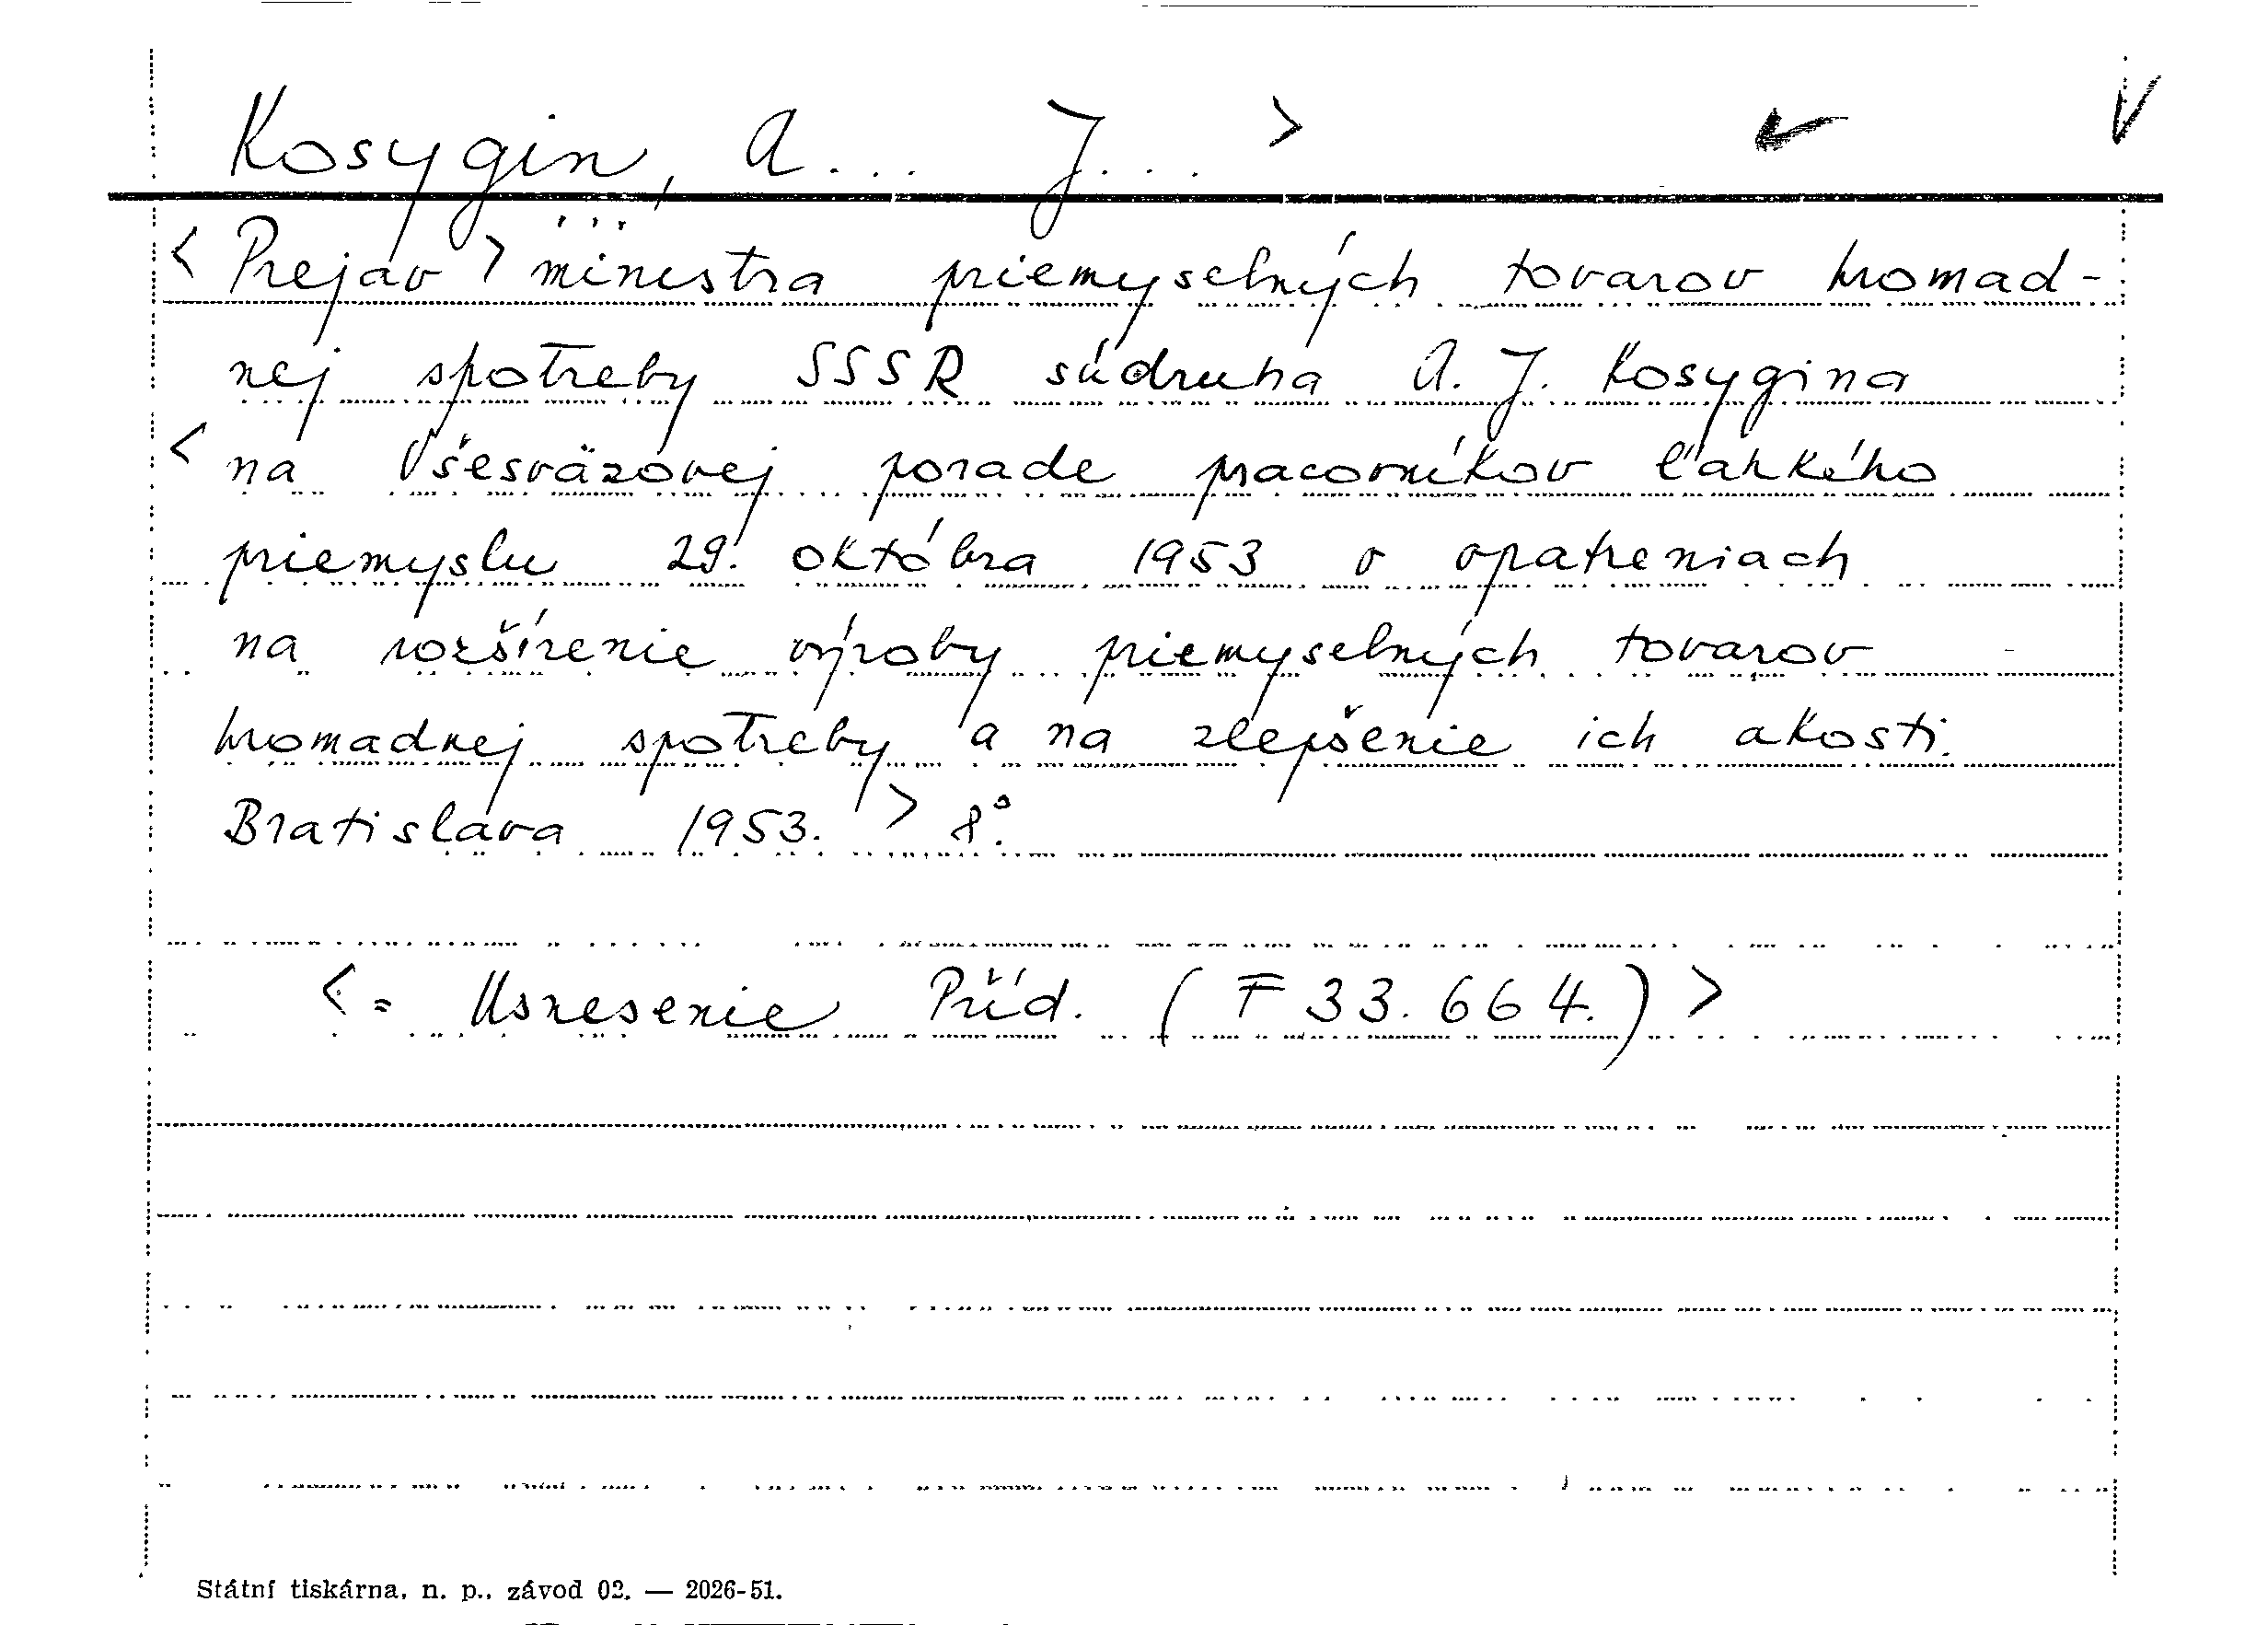 Kosygin, A... J... >
< Prejav > ministra priemyselných tovarov hromad-
nej spotreby SSSR súdruha A. J. Kosygina
< na Všesväzovej porade pracovníkov ľahkého
priemyslu 29. októbra 1953 o opatreniach
na rozšírenie výroby priemyselných tovarov
hromadnej spotreby a na zlepšenie ich akosti.
Bratislava 1953. > 8°.
< = Usnesenie Příd. (F 33.664.) >
Státní tiskárna, n. p., závod 02. — 2026-51.